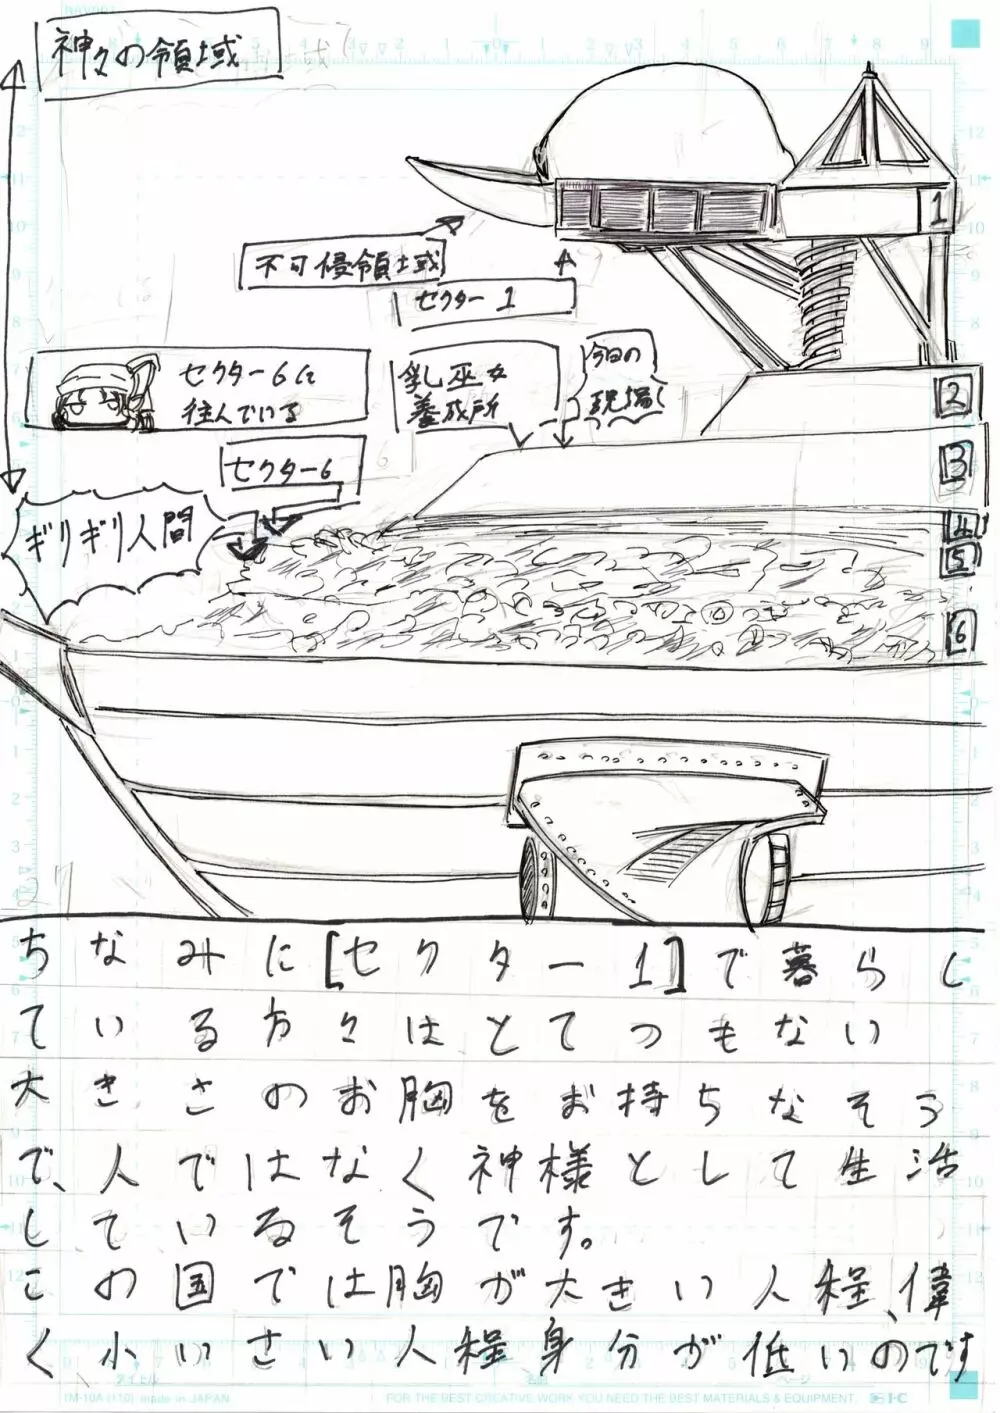 神々の領域
不可侵領域
セクター1
1
セクター6に
住んでいる
乳巫女
養成所
今日の
現場
2
セクター6
3
ギリギリ人間
4
5
6
ちなみに[セクター1]で暮らし
ている方々はとてつもない
大きさのお胸をお持ちなそう
で、人ではなく神様として生活
しているそうです。
この国では胸が大きい人程、偉
く小いさい人程身分が低いのです
タイトル
ページ
IM-10A (110) made in JAPAN
FOR THE BEST CREATIVE WORK YOU NEED THE BEST MATERIALS & EQUIPMENT.
I·C